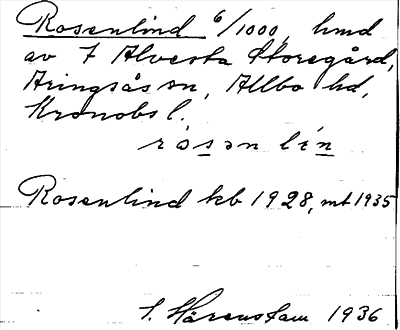 Rosenlind 6/1000, hmd
av 7 Alvesta Storegård,
Aringsås sn, Allbo hd,
Kronobs l.
rósən lín
Rosenlind kb 1928, mt 1935
I. Härenstam 1936